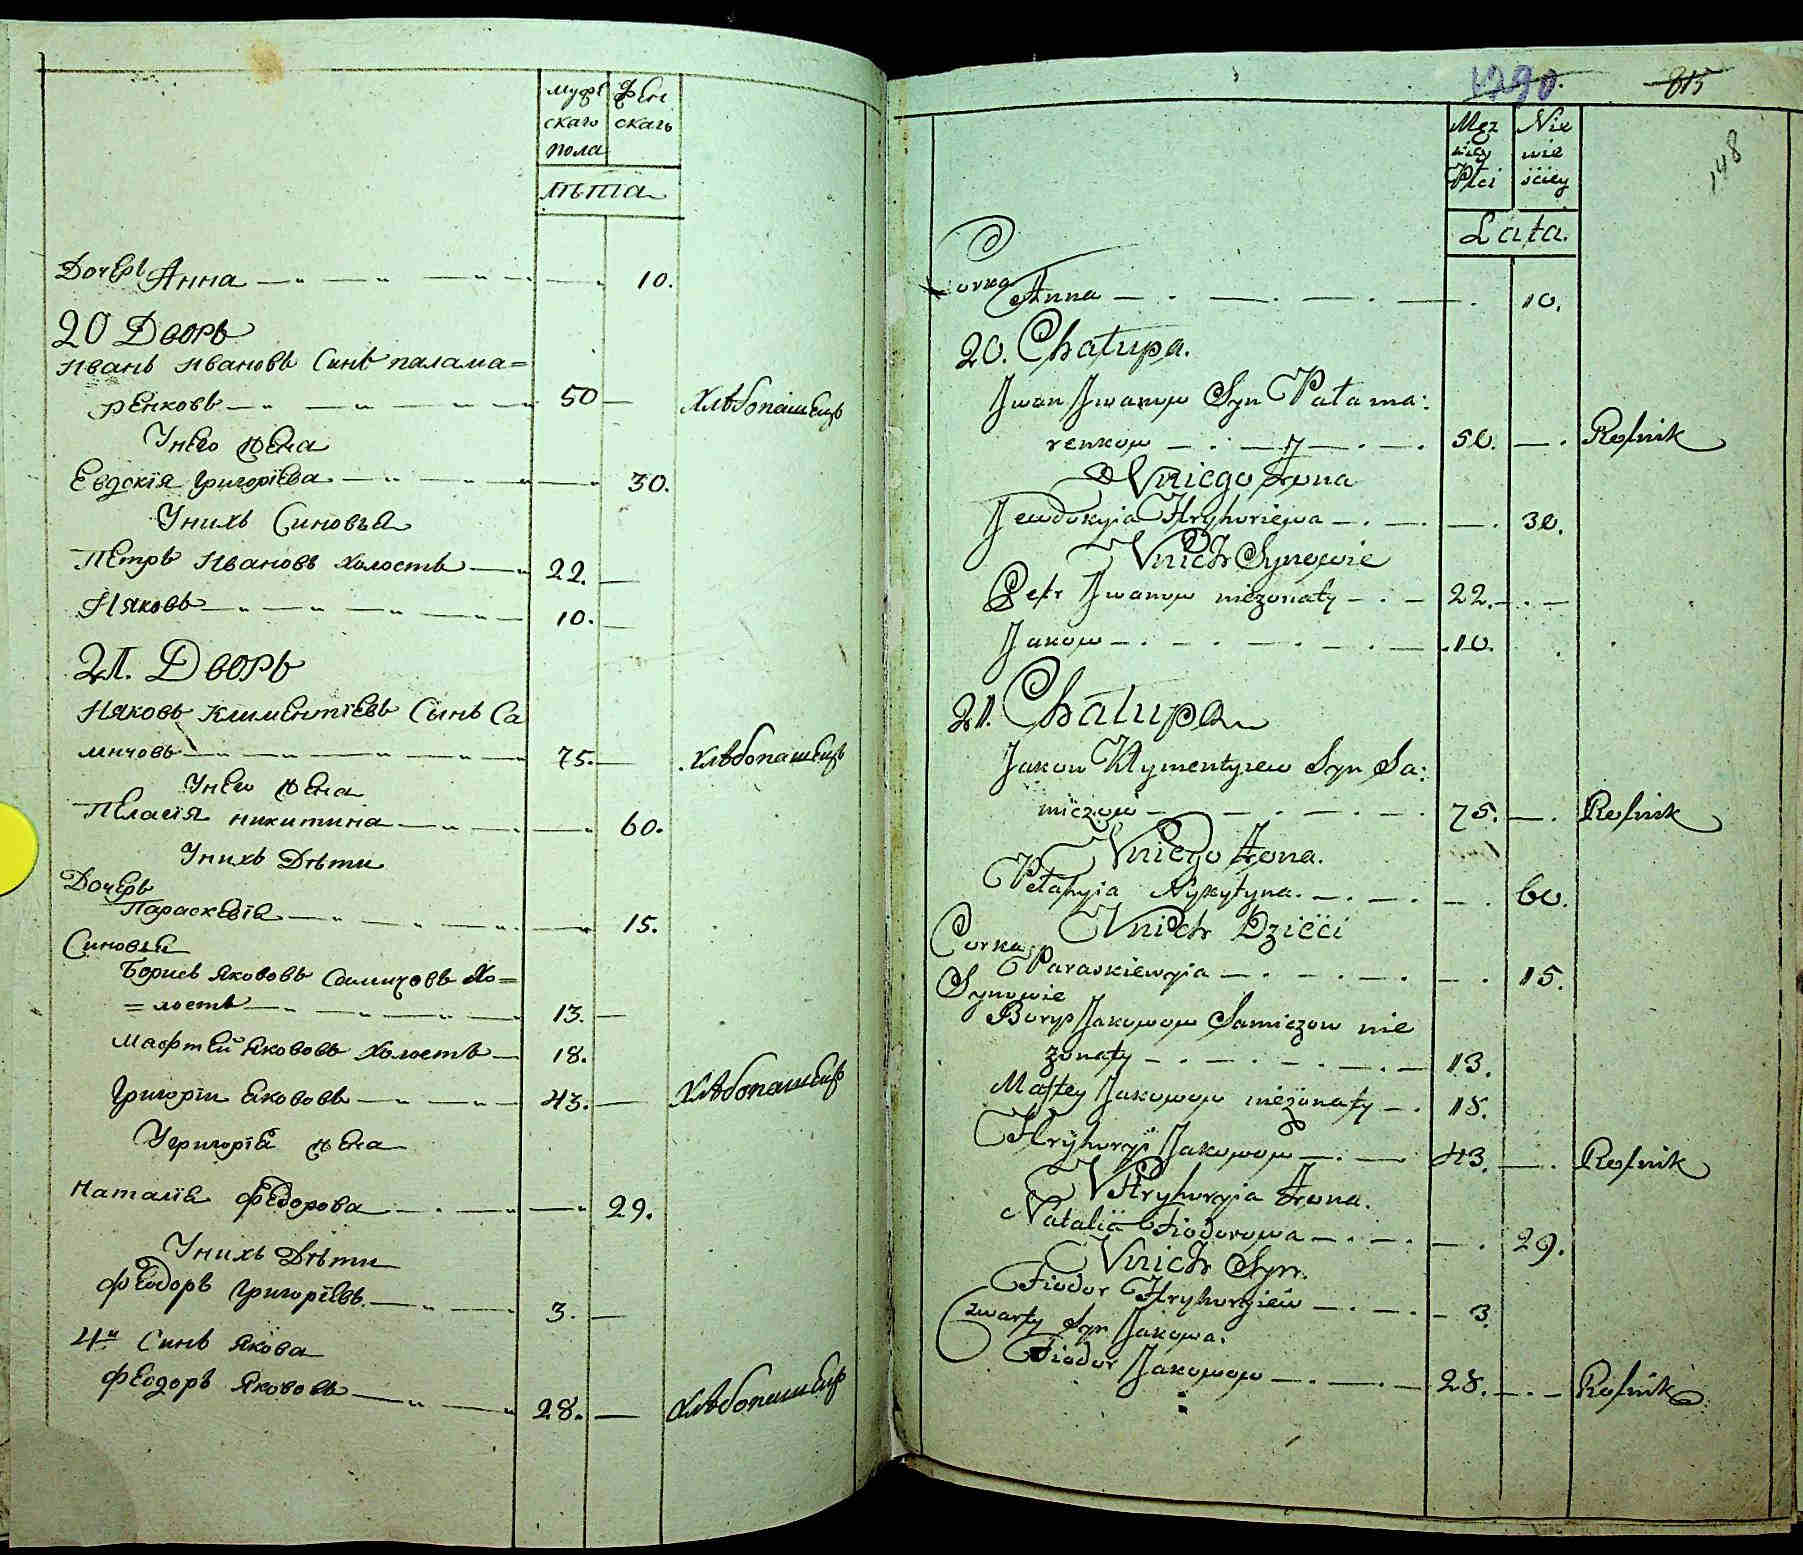 мужескаго пола
женскаго
лѣта
Дочерь Анна 10.
20 Дворъ
Иванъ Ивановъ Синъ палама=
ренковъ 50 Хлѣбопашецъ
Унего жена
Евдокія Григоріева 30.
Унихъ Синовья
Петръ Ивановъ холостъ 22.
Ияковъ 10.
21. Дворъ
Ияковъ Климентіевъ Сынъ Са
мичовъ 75. Хлѣбопашецъ
Унего жена
Пелагія Никитина 60.
Унихъ Дѣти
Дочерь
Параскевія 15.
Синовья
Борисъ Якововъ Самичовъ Хо=
=лостъ 13.
Мафтей Якововъ Холостъ 18.
Григорій Якововъ 43. Хлѣбопашецъ
Угригорія жена
Наталія Федорова 29.
Унихъ Дѣти
Феодоръ Григоріевъ 3.
4й Синъ Якова
Феодоръ Якововъ 28. Хлѣбопашецъ
1790. 815
148
Męz
kiey
Płci
Nie
wie
sciey
Lata.
Corka
Anna 10.
20. Chałupa.
Jwan Jwanow Syn Pałama:
renkow 50. Rolnik
Vniego Żona
Jewdokyia Hryhoriewa 30.
Vnich Synowie
Petr Jwanow niezonaty 22.
Jakow 10.
21. Chałupa
Jakow Klymentyiew Syn Sa:
miczow 75. Rolnik
Vniego Żona.
Pełahyia Nykytyna. 60.
Vnich Dzieci
Corka
Paraskiewyia 15.
Synowie
Borys Jakowow Samiczow nie
zonaty 13.
Maftey Jakowow niezonaty 18.
Hryhoryi Jakowow 43. Rolnik
VHryhoryia Żona.
Natalia Fiodorowa 29.
Vnich Syn.
Fiodor Hryhoryiew 3.
Czwarty Syn Jakowa.
Fiodor Jakowow 28. Rolnik